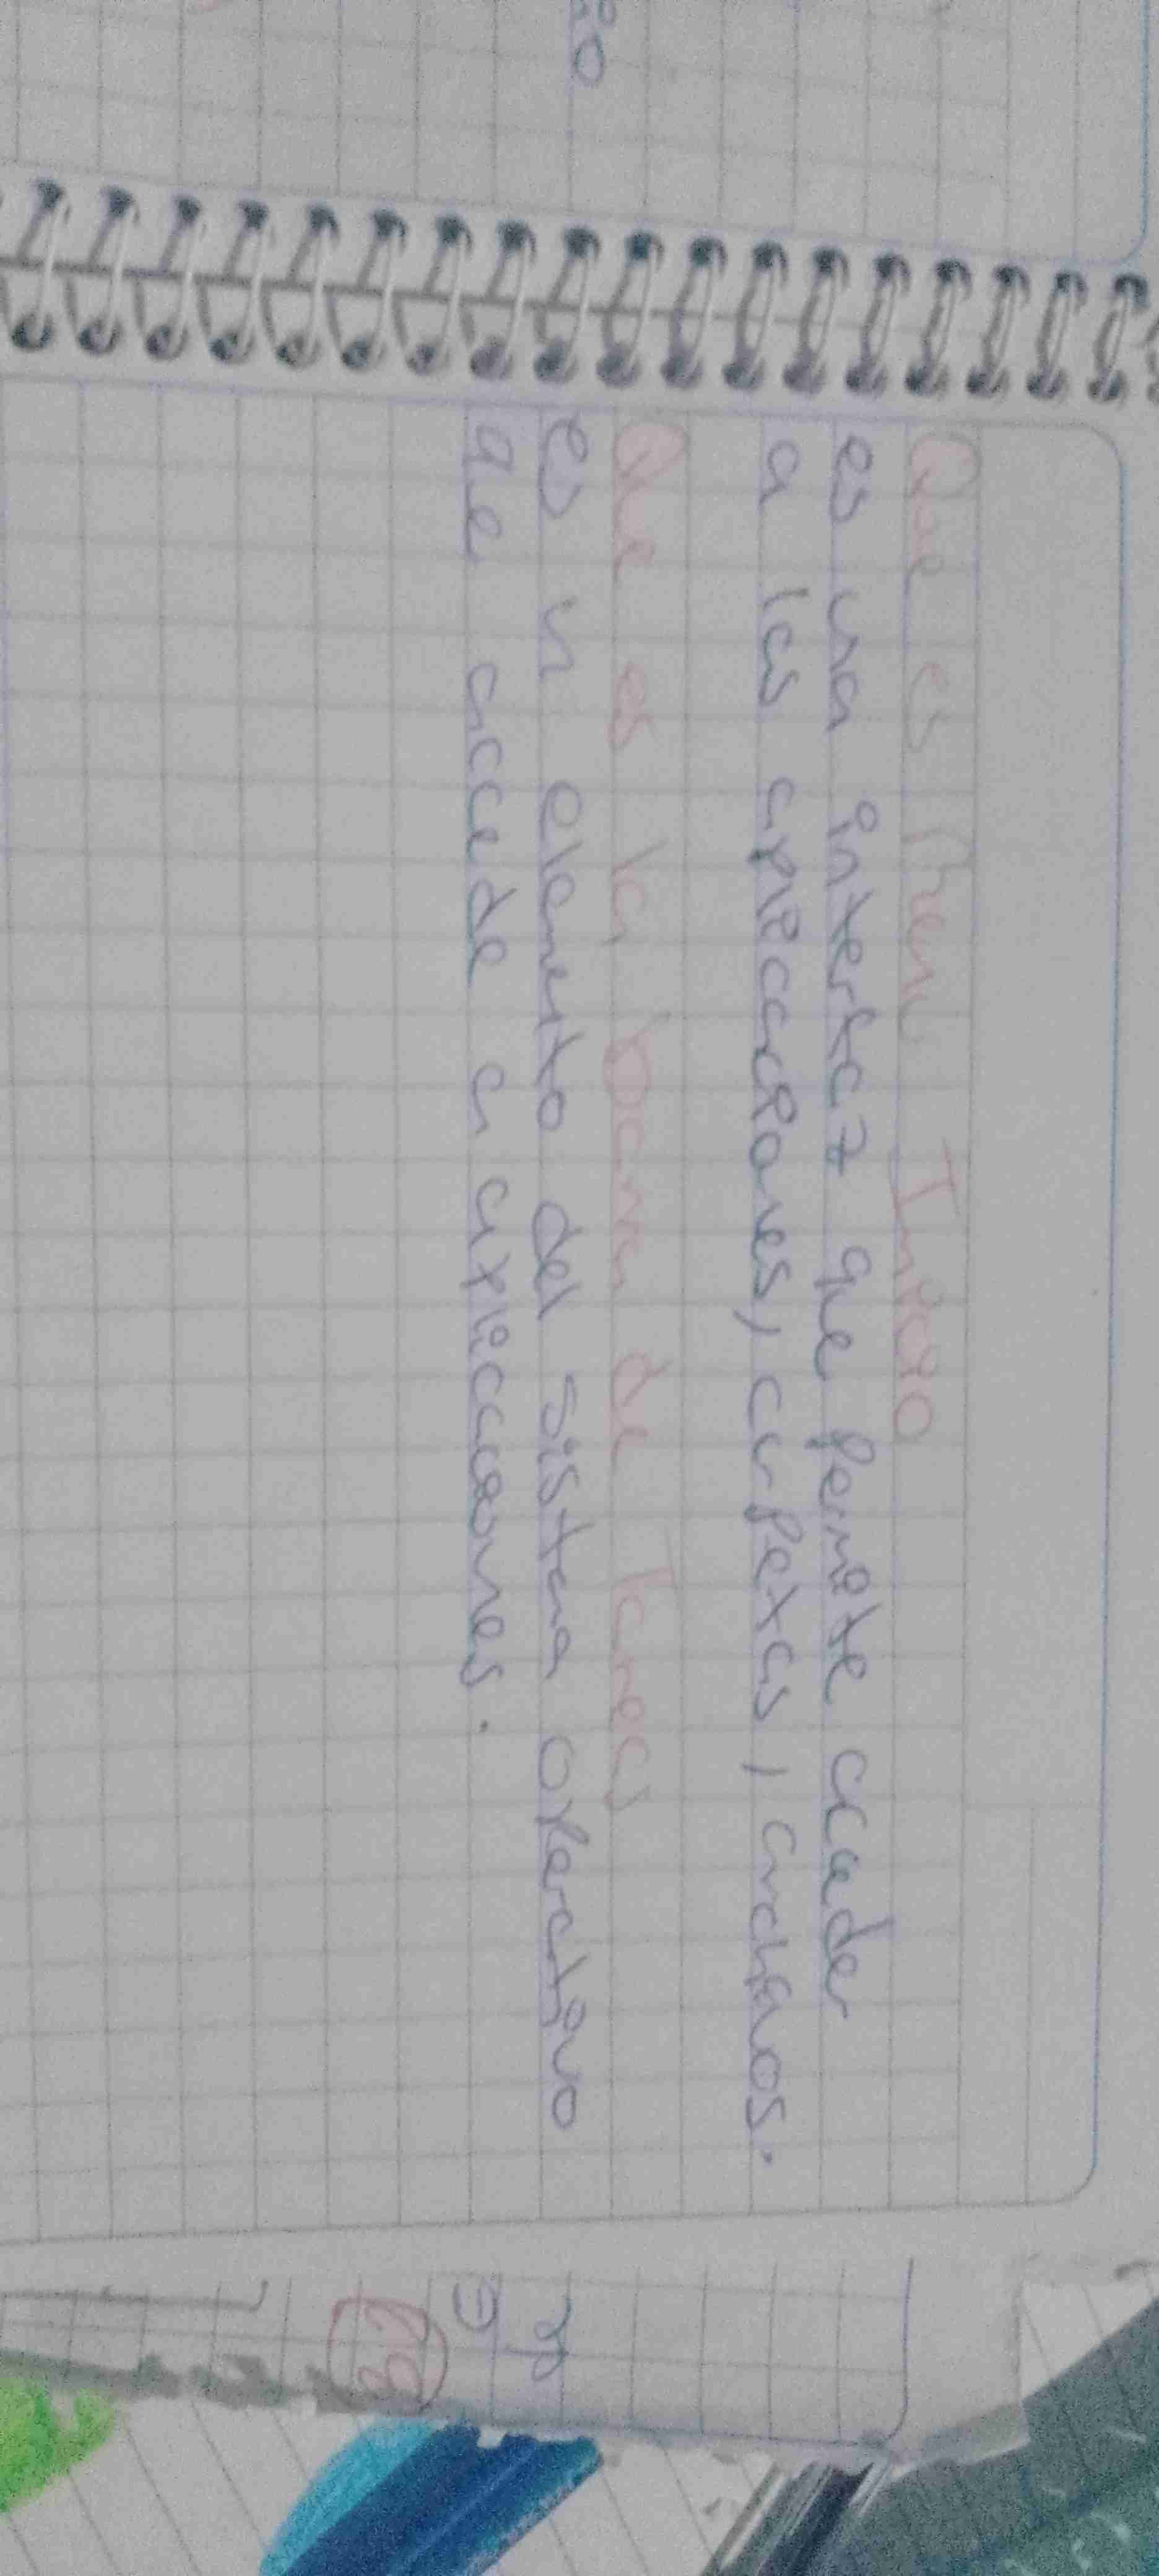 Que es Menu Inicio
es una interfaz que permite acceder
a las aplicaciones, carpetas, archivos.
Que es la barra de Tareas
es un elemento del sistema operativo
que accede a aplicaciones.